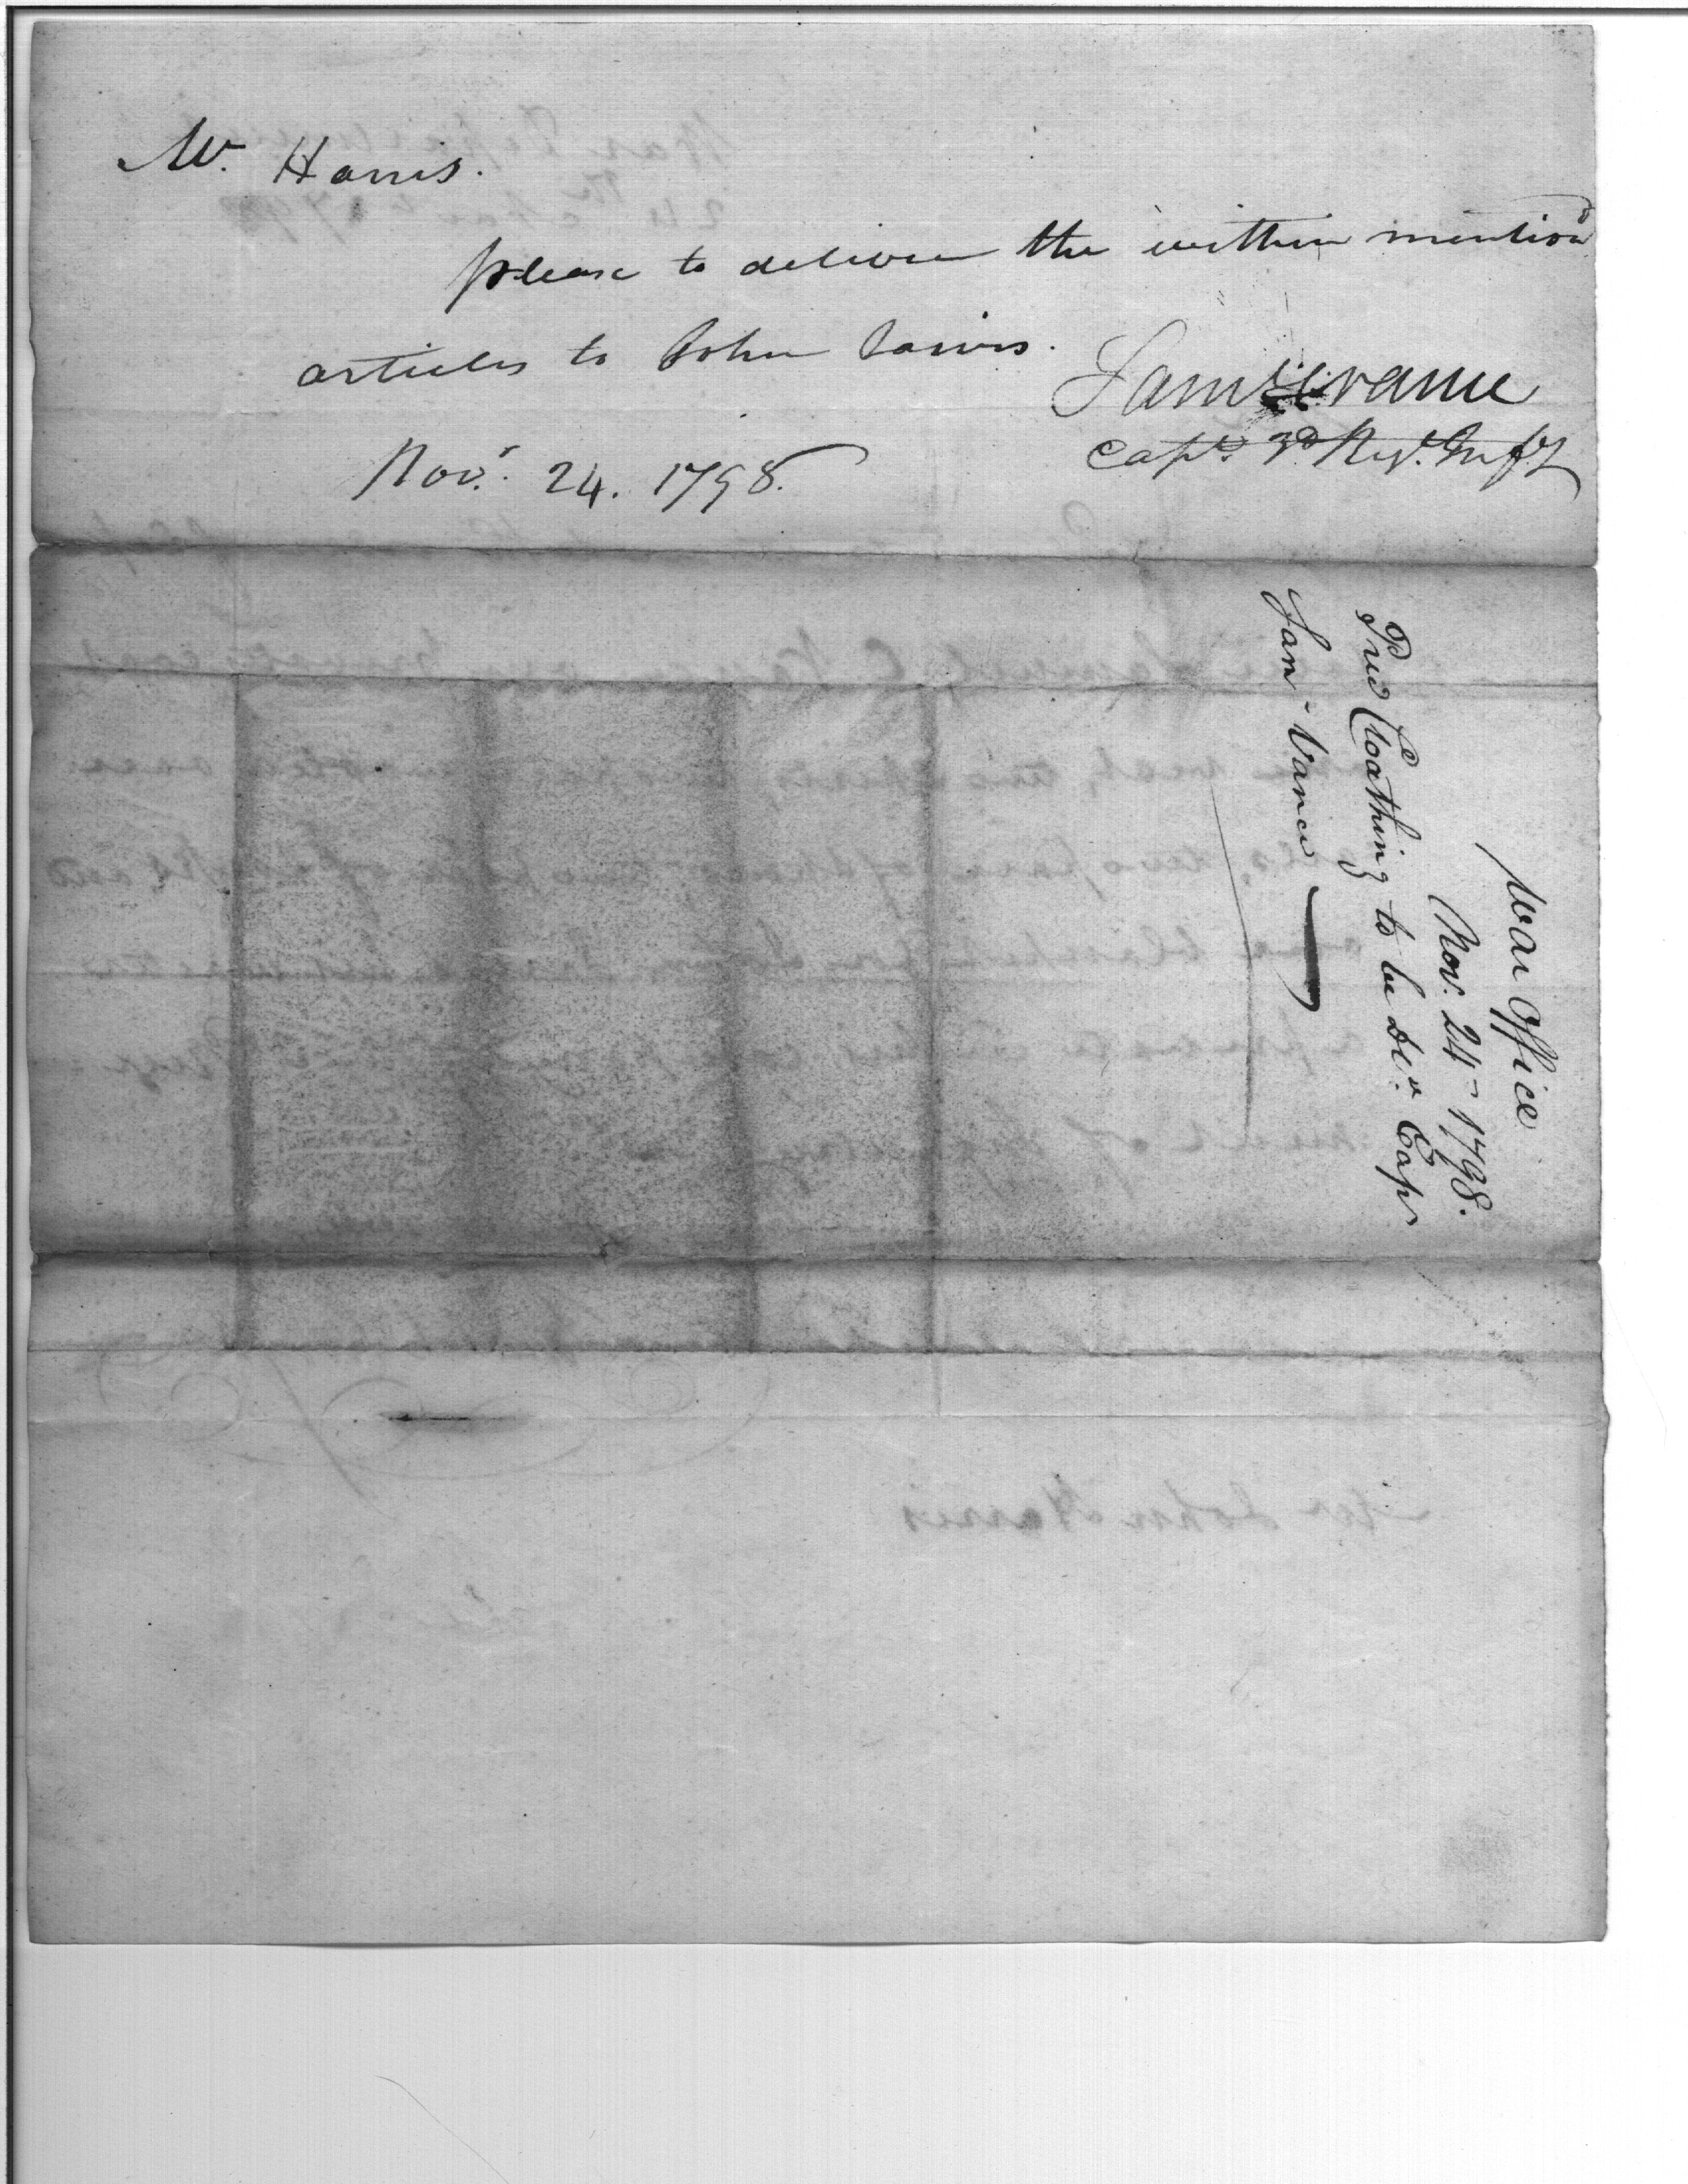 Mr. Harris.
please to deliver the within mention'd
articles to John
Saml. C. Vance
Capt. 3d Regt. Infy
Novr. 24. 1798.
War Office
Nov. 24 - 1798.
Cloathing to be Dr. Cap
Sam Vance